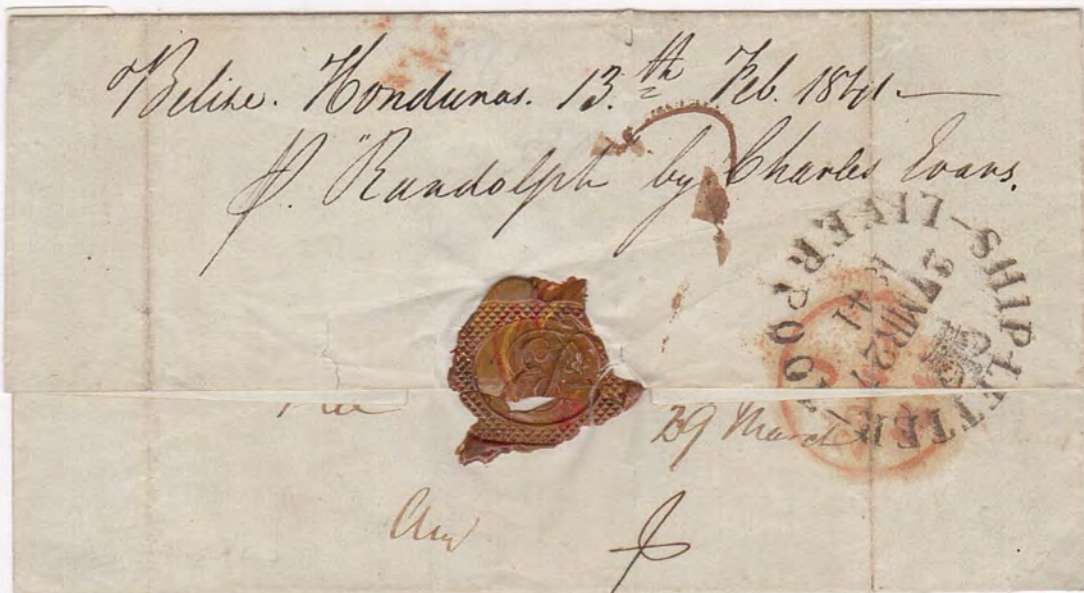 Belize. Honduras. 13.th Feb. 1841.—
P. "Randolph" by Charles Evans.
SHIP-LETTER
LIVERPOOL
27 MR 27
41
29 March